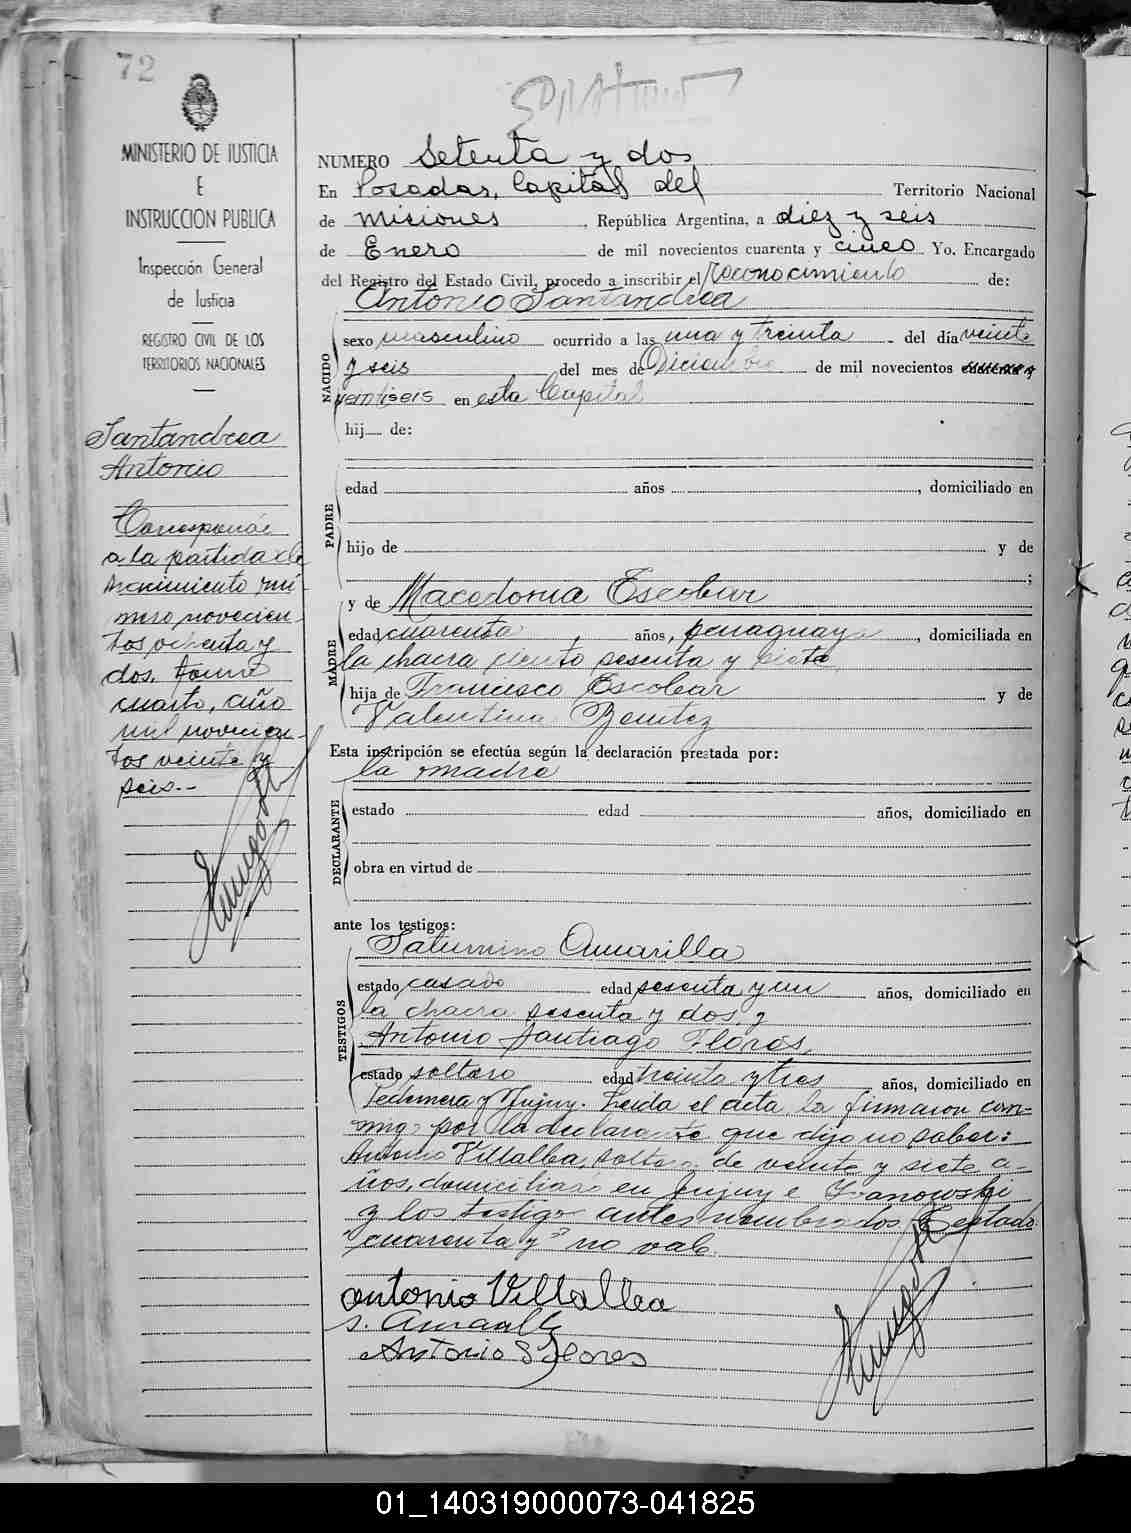 72
MINISTERIO DE JUSTICIA
E
INSTRUCCION PUBLICA
Inspección General
de Justicia
REGISTRO CIVIL DE LOS
TERRITORIOS NACIONALES
Santandrea
Antonio
Corresponde
a la partida de
nacimiento nú-
mero novecien-
tos ochenta y
dos, tomo
cuarto, año
mil novecien-
tos veinte y
seis.--
NUMERO Setenta y dos
En Posadas, Capital del Territorio Nacional
de Misiones, República Argentina, a diez y seis
de Enero de mil novecientos cuarenta y cinco Yo, Encargado
del Registro del Estado Civil, procedo a inscribir el reconocimiento de:
Antonio Santandrea
NACIDO
sexo masculino ocurrido a las una y treinta del día veinte
y seis del mes de Diciembre de mil novecientos
veintiseis en esta Capital
hij de:
PADRE
edad años , domiciliado en
hijo de y de
;
MADRE
y de Macedonia Escobar
edad cuarenta, años, paraguaya, domiciliada en
la chacra ciento sesenta y siete
hija de Francisco Escobar y de
Valentina Benitez
Esta inscripción se efectúa según la declaración prestada por:
la madre
DECLARANTE
estado edad años, domiciliado en
obra en virtud de
ante los testigos:
TESTIGOS
Saturnino Amarilla
estado casado edad sesenta y un años, domiciliado en
la chacra sesenta y dos, y
Antonio Santiago Flores,
estado soltero edad treinta y tres años, domiciliado en
y Jujuy. Leida el acta la firmaron con-
migo por la declarante que dijo no saber:
Antonio Villalba, soltero, de veinte y siete a-
ños, domiciliado en Jujuy e
y los testigos antes nombrados. Testado
"cuarenta y" no vale.
Antonio Villalba
S. Amarilla
Antonio S Flores
01_140319000073-041825